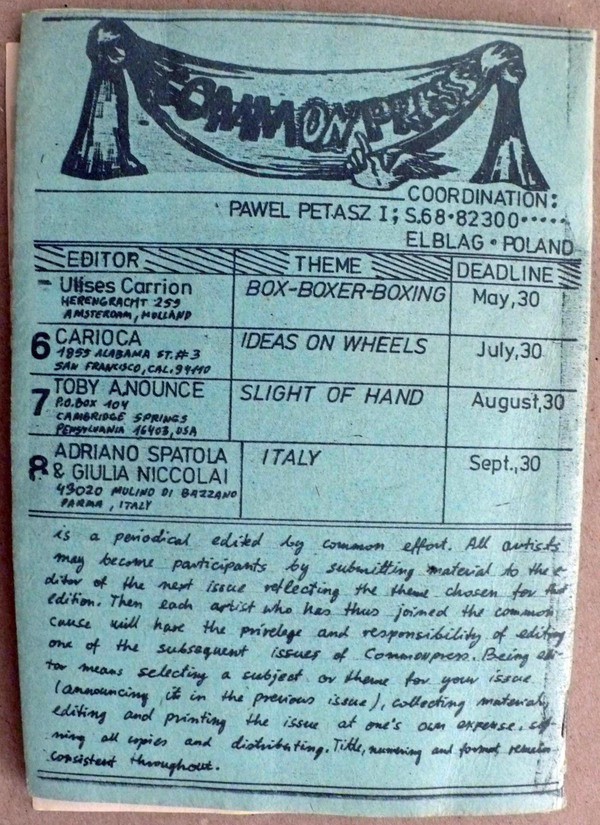 COMMONPRESS
COORDINATION:
PAWEL PETASZ I; S.68·82300·····
ELBLAG · POLAND
EDITOR THEME DEADLINE
Ulises Carrion BOX-BOXER-BOXING May,30
HERENGRACHT 259
AMSTERDAM, HOLLAND
6 CARIOCA IDEAS ON WHEELS July,30
1855 ALABAMA ST.# 3
SAN FRANCISCO, CAL. 94110
7 TOBY A.NOUNCE SLIGHT OF HAND August,30
P.O.BOX 104
CAMBRIDGE SPRINGS
PENSYLVANIA 16403, USA
8 ADRIANO SPATOLA ITALY Sept.,30
& GIULIA NICCOLAI
43020 MULINO DI BAZZANO
PARMA, ITALY
is a periodical edited by common effort. All artists
may become participants by submitting material to the e-
ditor of the next issue reflecting the theme chosen for that
edition. Then each artist who has thus joined the common
cause will have the privelege and responsibility of editing
one of the subsequent issues of Commonpress. Being edi-
tor means selecting a subject or theme for your issue
(announcing it in the previous issue), collecting materials,
editing and printing the issue at one's own expense,
ning all copies and distributing. Title, numering and format remain
consistent throughout.